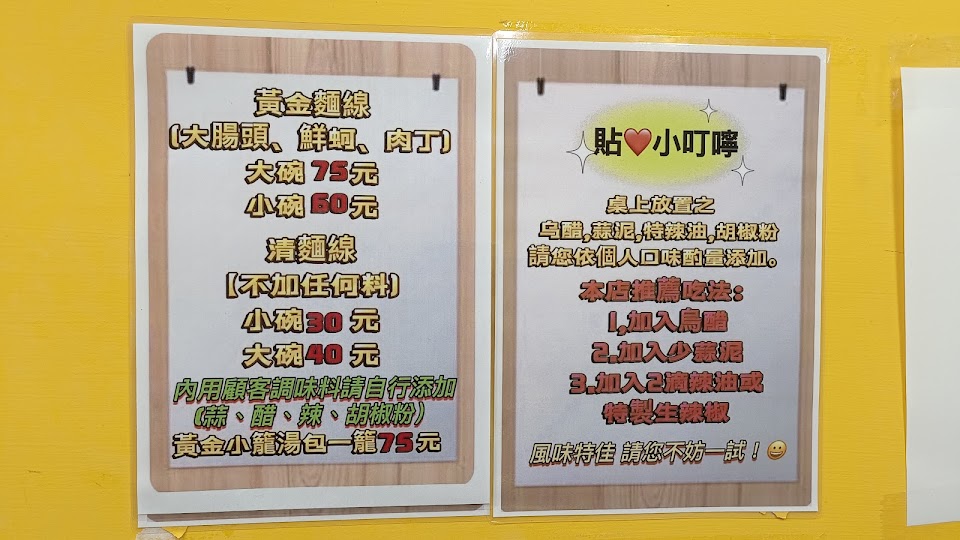 黃金麵線
(大腸頭、鮮蚵、肉丁)
大碗 75 元
小碗 60 元
清麵線
【不加任何料)
小碗 30 元
大碗 40 元
內用顧客調味料請自行添加
(蒜、醋、辣、胡椒粉)
黃金小籠湯包一籠75元
貼❤️小叮嚀
桌上放置之
烏醋,蒜泥,特辣油,胡椒粉
請您依個人口味酌量添加。
本店推薦吃法:
1,加入烏醋
2.加入少蒜泥
3.加入2滴辣油或
特製生辣椒
風味特佳 請您不妨一試！😀